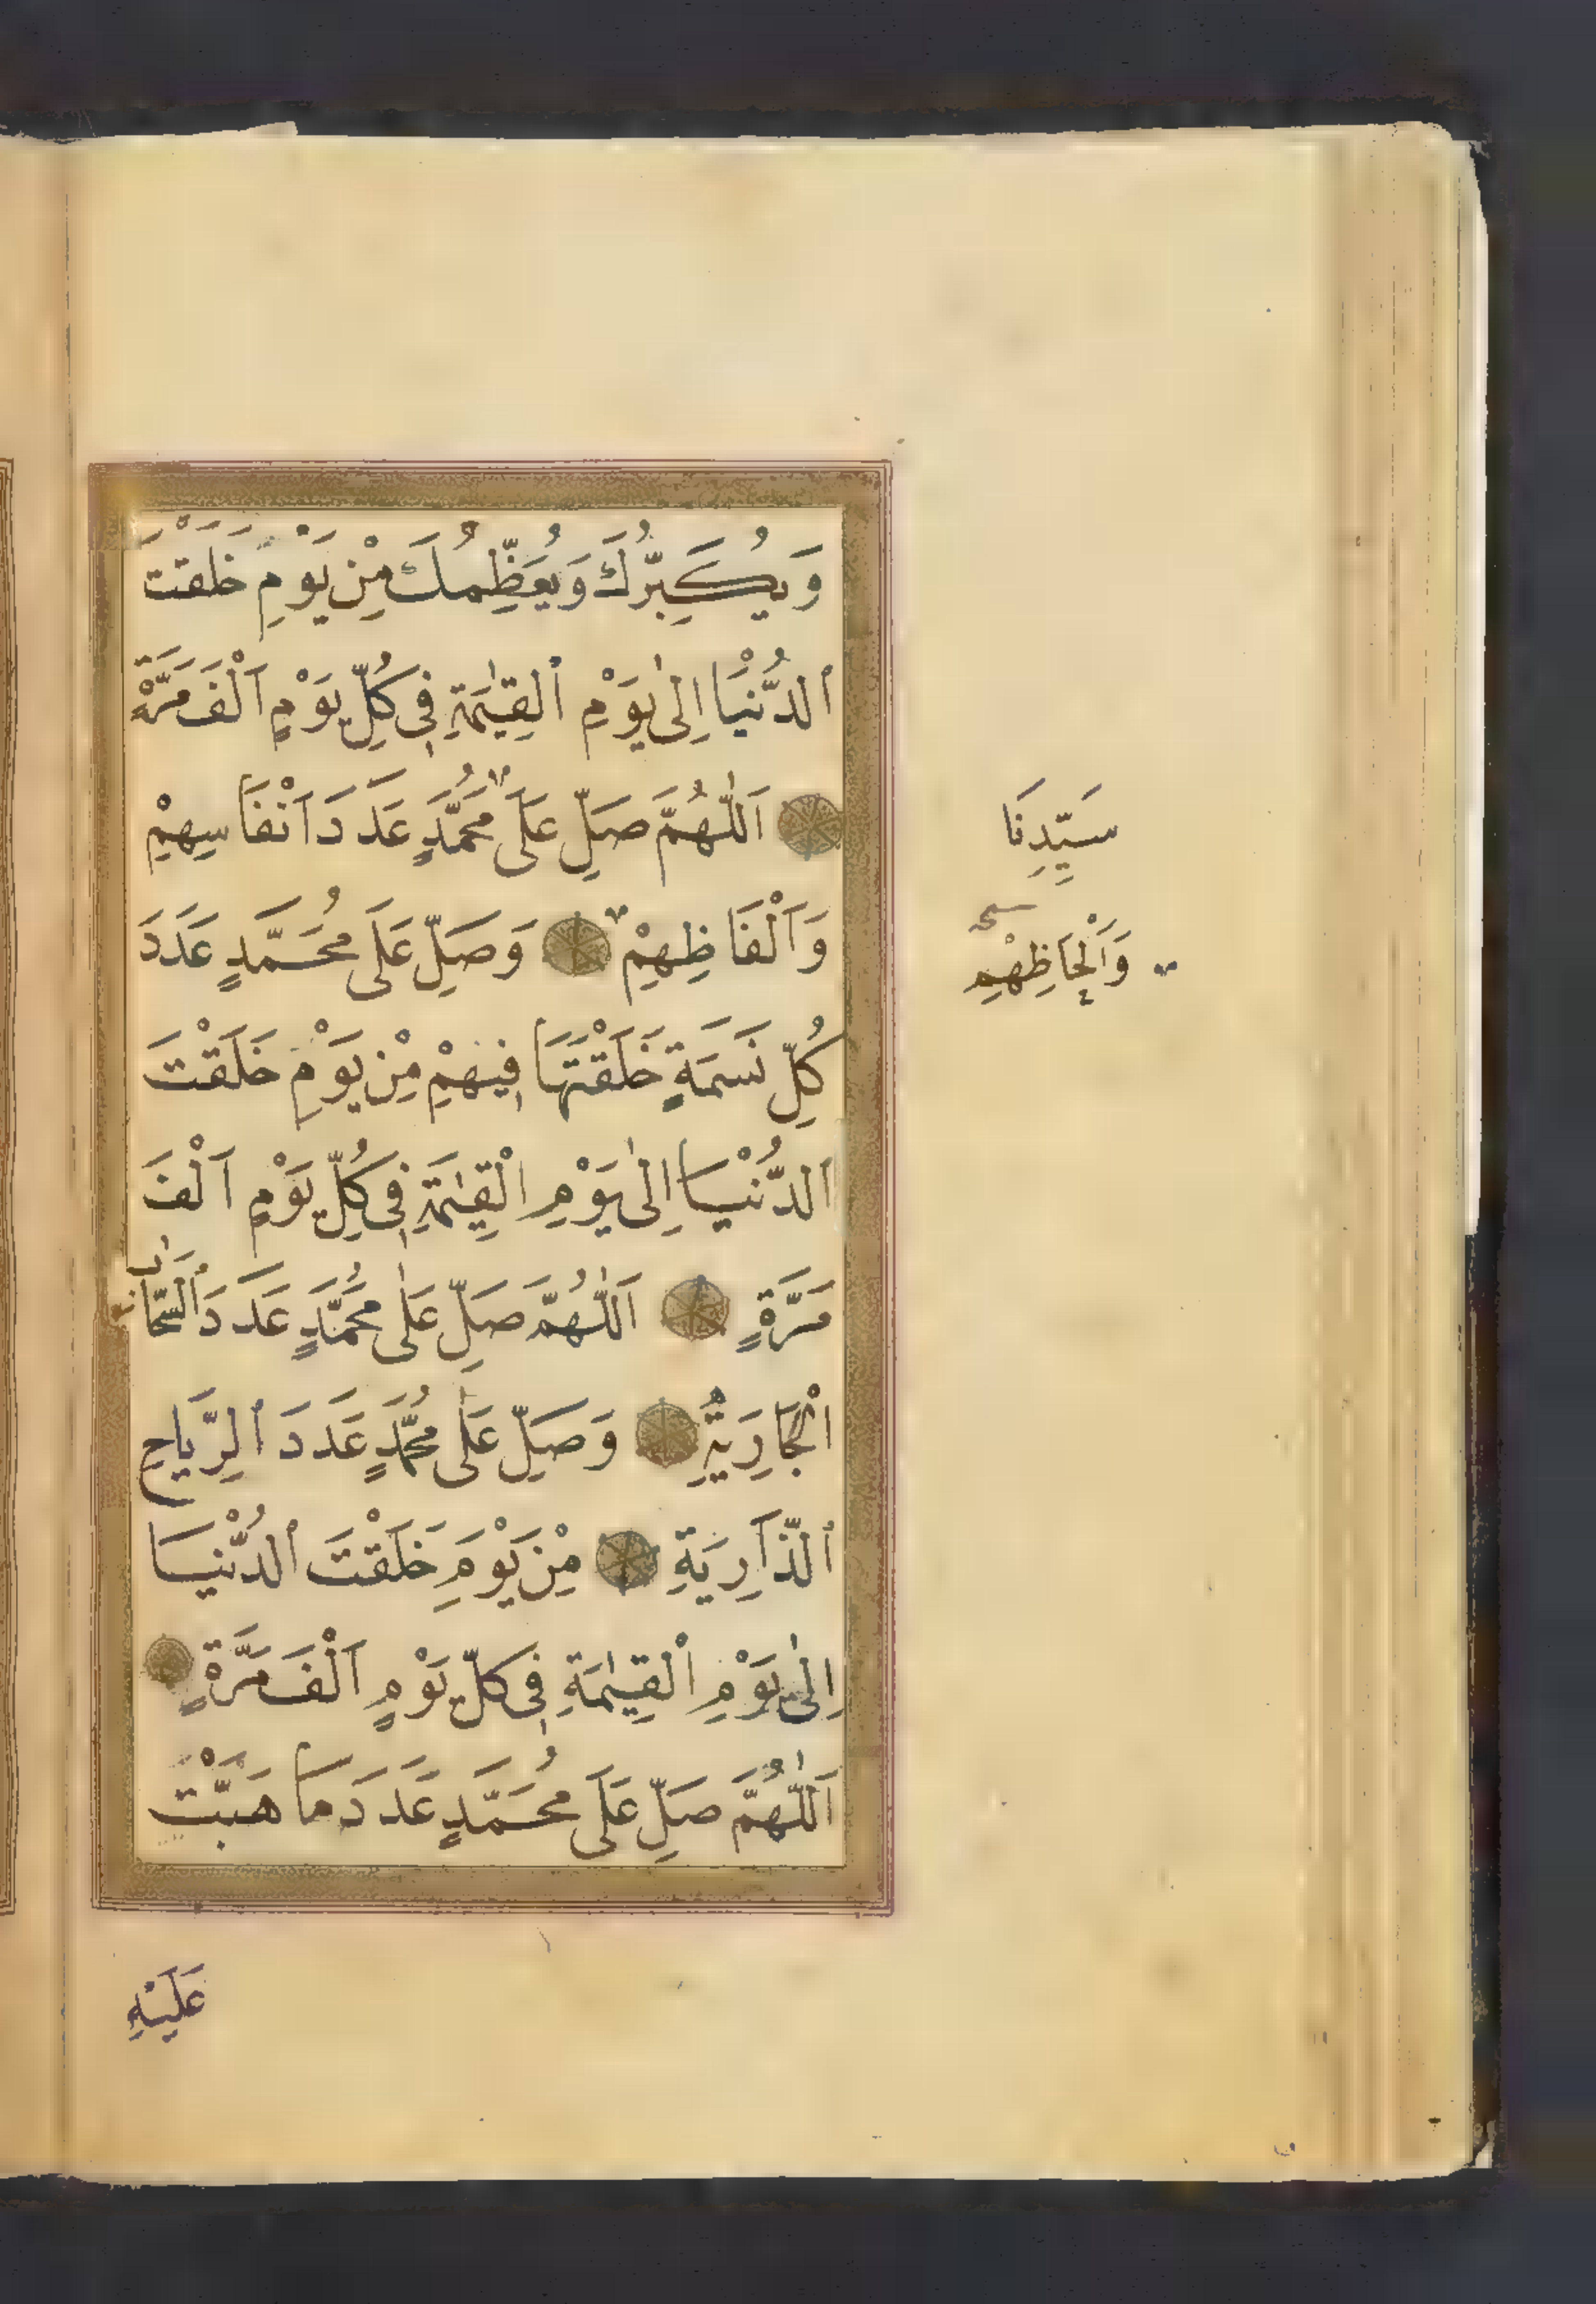 وَيُكَبِّرُكَ وَيُعَظِّمُكَ مِنْ يَوْمِ خَلَقْتَ
اَلدُّنْيَا اِلٰى يَوْمِ اَلْقِيٰمَةِ فِي كُلِّ يَوْمٍ اَلْفَ مَرَّةٍ
اَللّٰهُمَّ صَلِّ عَلَى مُحَمَّدٍ عَدَدَ اَنْفَاسِهِمْ
وَاَلْفَاظِهِمْ وَصَلِّ عَلَى مُحَمَّدٍ عَدَدَ
كُلِّ نَسَمَةٍ خَلَقْتَهَا فِيهِمْ مِنْ يَوْمِ خَلَقْتَ
اَلدُّنْيَا اِلٰى يَوْمِ الْقِيٰمَةِ فِي كُلِّ يَوْمٍ اَلْفَ
مَرَّةٍ اَللّٰهُمَّ صَلِّ عَلٰى مُحَمَّدٍ عَدَدَ اَلسَّحَابِ
اَلْجَارِيَةِ وَصَلِّ عَلَى مُحَمَّدٍ عَدَدَ اَلرِّيَاحِ
اَلذَّارِيَةِ مِنْ يَوْمِ خَلَقْتَ اَلدُّنْيَا
اِلٰى يَوْمِ اَلْقِيٰمَةِ فِي كُلِّ يَوْمٍ اَلْفَ مَرَّةٍ
اَللّٰهُمَّ صَلِّ عَلَى مُحَمَّدٍ عَدَدَ مَا هَبَّتْ
عَلَيْهِ
سَيِّدِنَا
وَاَلْحَاظِهِمْ